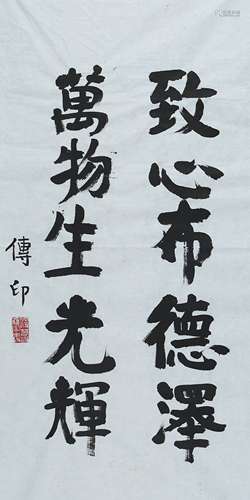 致心布德澤
萬物生光輝
傳印